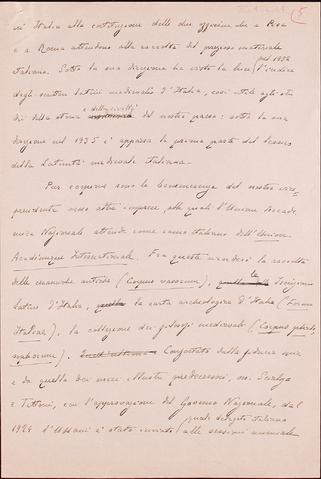 5
in Italia alla costituzione delle due officine che a Pisa
e a Roma attendono alla raccolta del prezioso materiale
italiano. Sotto la sua direzione ha visto la luce nel 1932 l'indice
degli scrittori latini medievali d'Italia, così utile agli stu
di della storia e della civiltà del nostro paese: sotto la sua
direzione nel 1935 è apparsa la prima parte del lessico
della Latinità medievale italiana.
Pur cospicue sono le benemerenze del nostro vice
presidente verso altre imprese, alle quali l'Unione Accade
mica Nazionale attende come ramo italiano dell'Union
Académique Internationale. Fra queste la raccolta
delle ceramiche antiche (Corpus vasorum), le Iscrizioni
Latine d'Italia, la carta archeologica d'Italia (Forma
Italiae), la collezione dei filosofi medievali (Corpus philoso
phorum). Confortato dalla fiducia mia
e da quella dei miei illustri predecessori, on. Scialoja
e Tittoni, con l'approvazione del Governo Nazionale, dal
1924 d'Ussani è stato inviato quale delegato italiano alle sessioni annuali